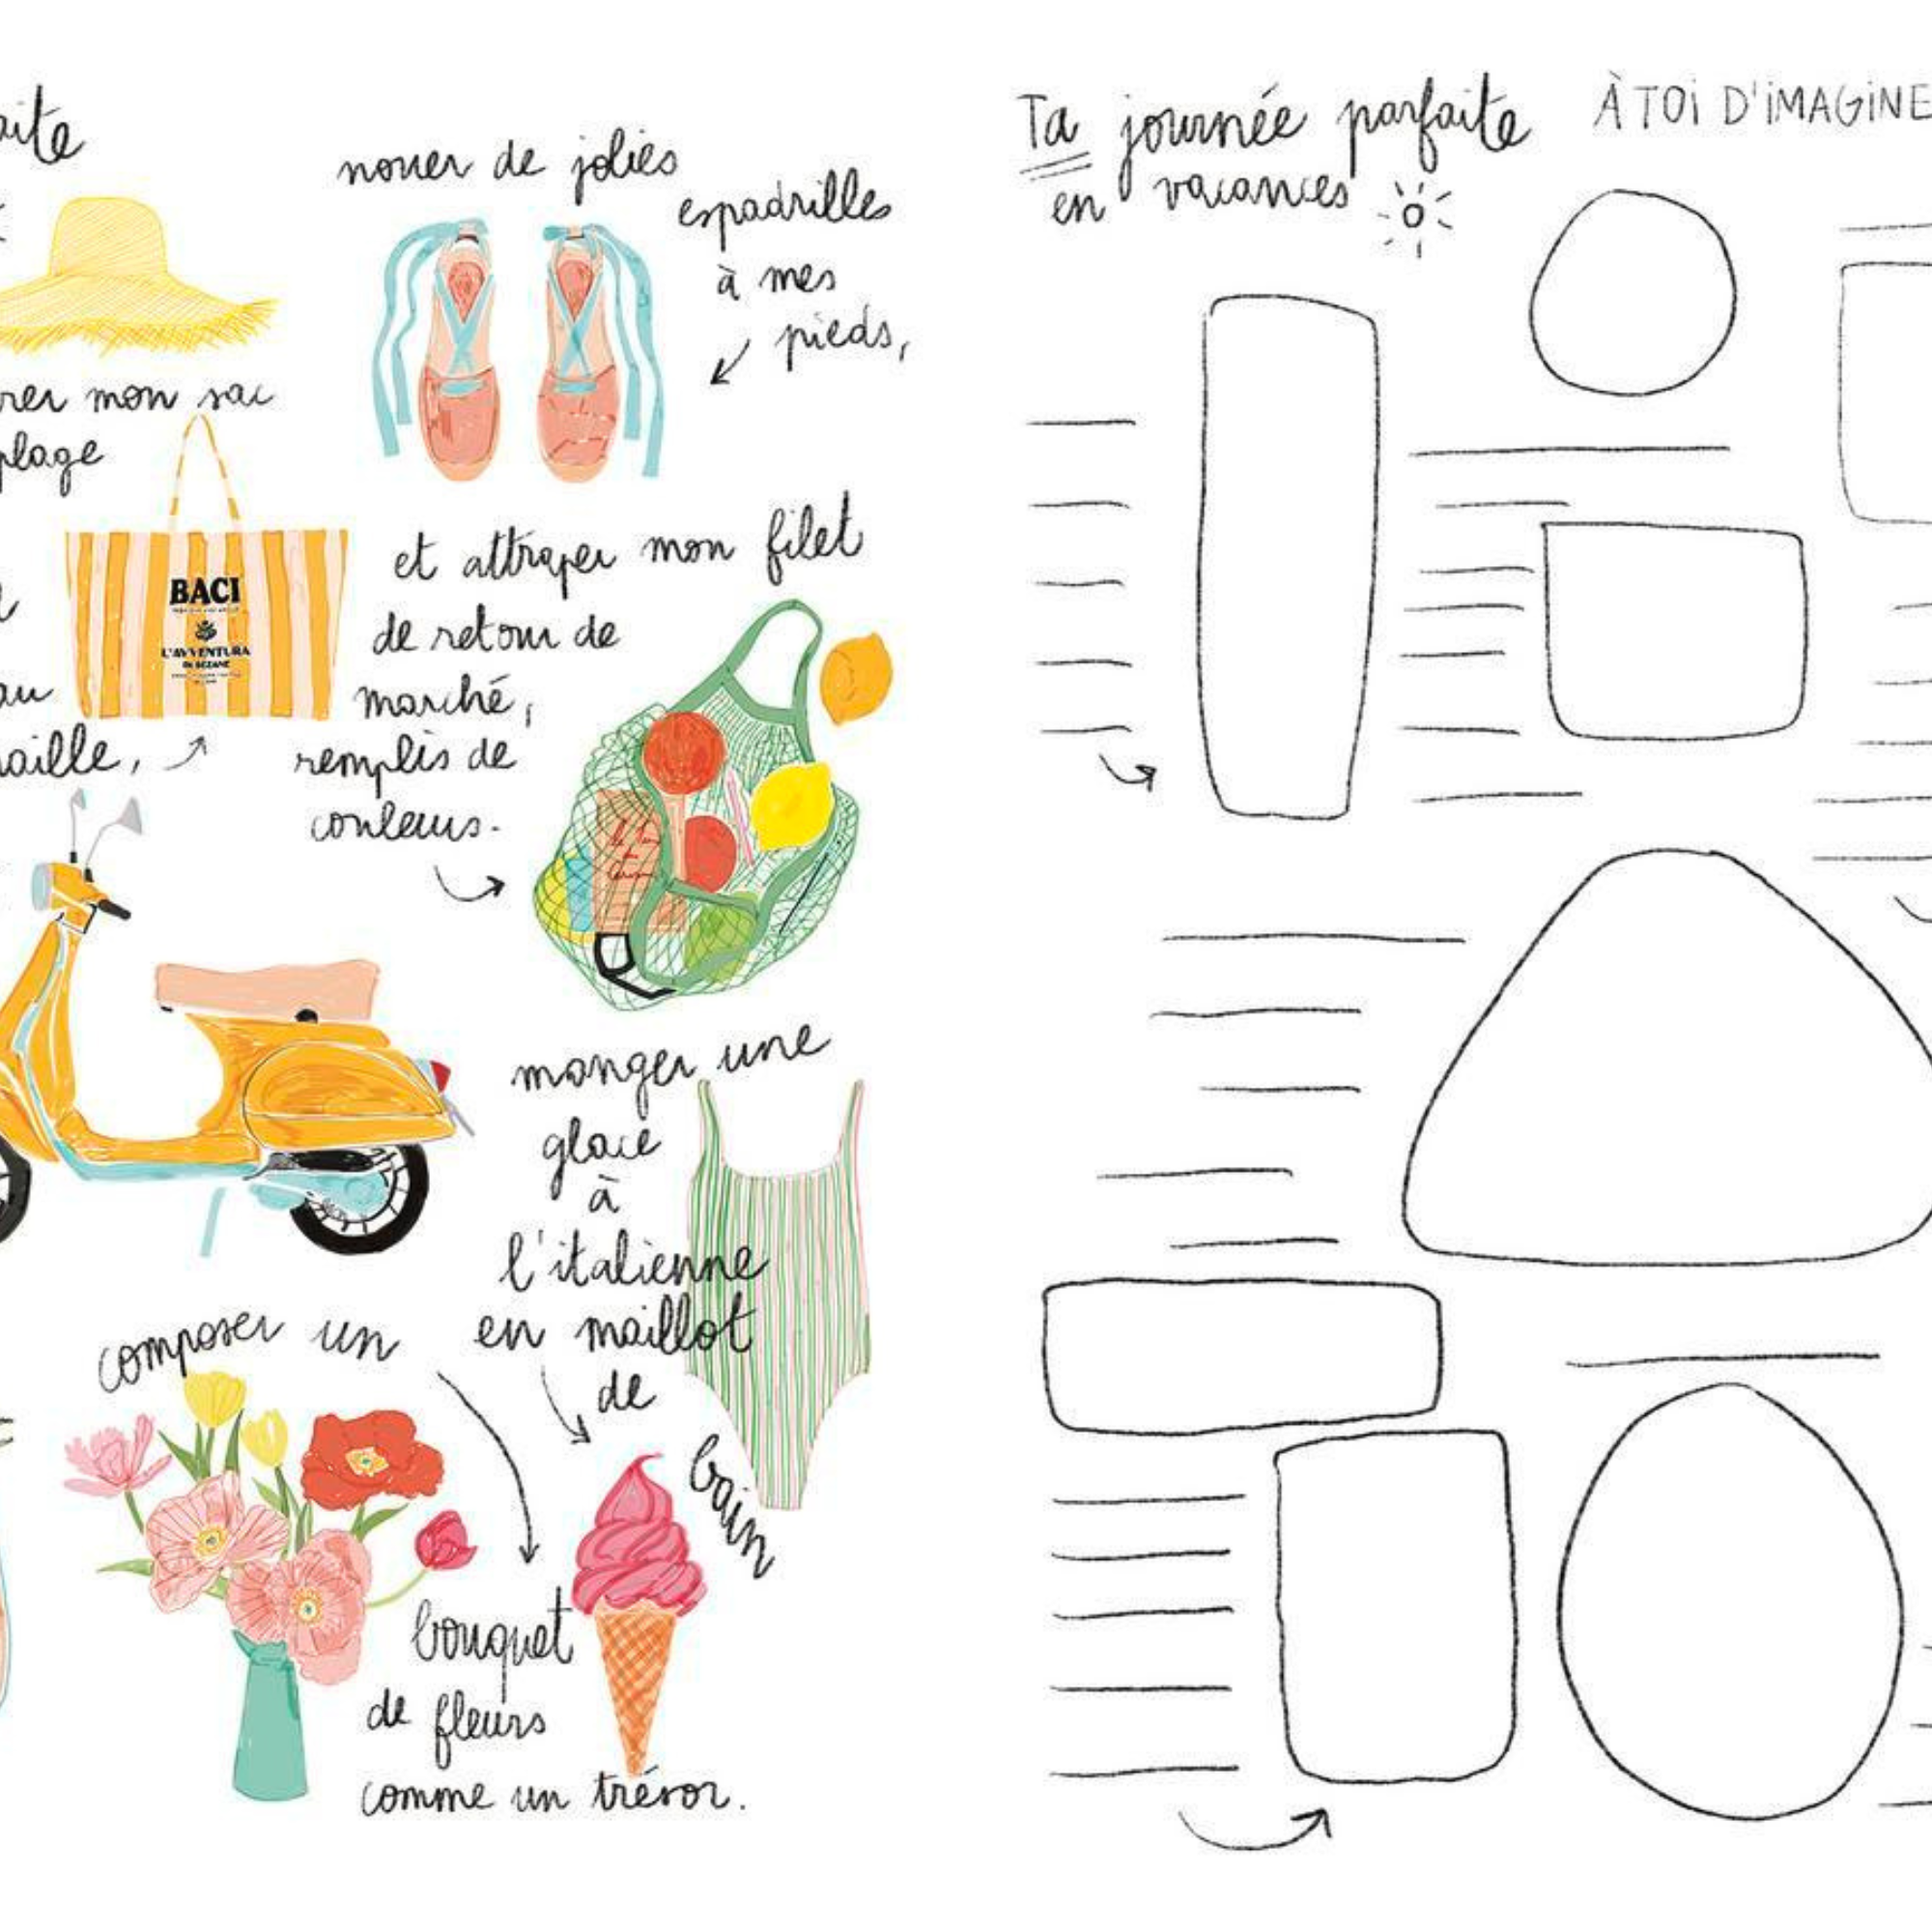 aite
nouer de jolies
espadrilles
à mes
pieds,
rer mon sac
plage
BACI
L'AVVENTURA
DI SEZANE
au
aille,
et attraper mon filet
de retour de
marché,
remplis de
couleurs.
manger une
glace
à
l'italienne
en maillot
de
bain
composer un
bouquet
de fleurs
comme un trésor.
Ta journée parfaite
en vacances
À TOI D'IMAGINE